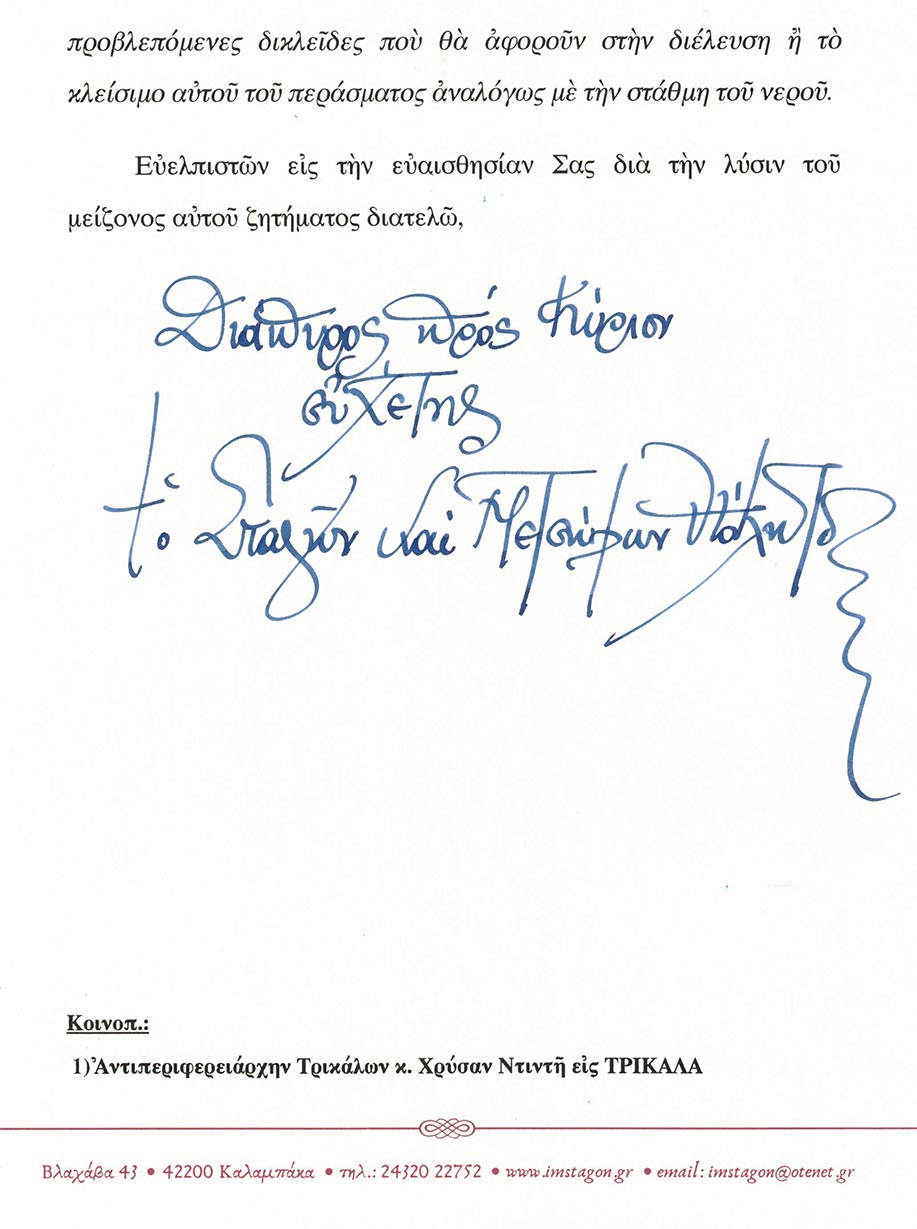 προβλεπόμενες δικλεῖδες ποὺ θὰ ἀφοροῦν στὴν διέλευση ἢ τὸ
κλείσιμο αὐτοῦ τοῦ περάσματος ἀναλόγως μὲ τὴν στάθμη τοῦ νεροῦ.
Εὐελπιστῶν εἰς τὴν εὐαισθησίαν Σας διὰ τὴν λύσιν τοῦ
μείζονος αὐτοῦ ζητήματος διατελῶ,
Διάπυρος πρός Κύριον
εὐχέτης
† ὁ Σταγῶν καί Μετεώρων
Κοινοπ.:
1)Ἀντιπεριφερειάρχην Τρικάλων κ. Χρύσαν Ντιντῆ εἰς ΤΡΙΚΑΛΑ
Βλαχάβα 43 • 42200 Καλαμπάκα • τηλ.: 24320 22752 • www.imstagon.gr • email: imstagon@otenet.gr